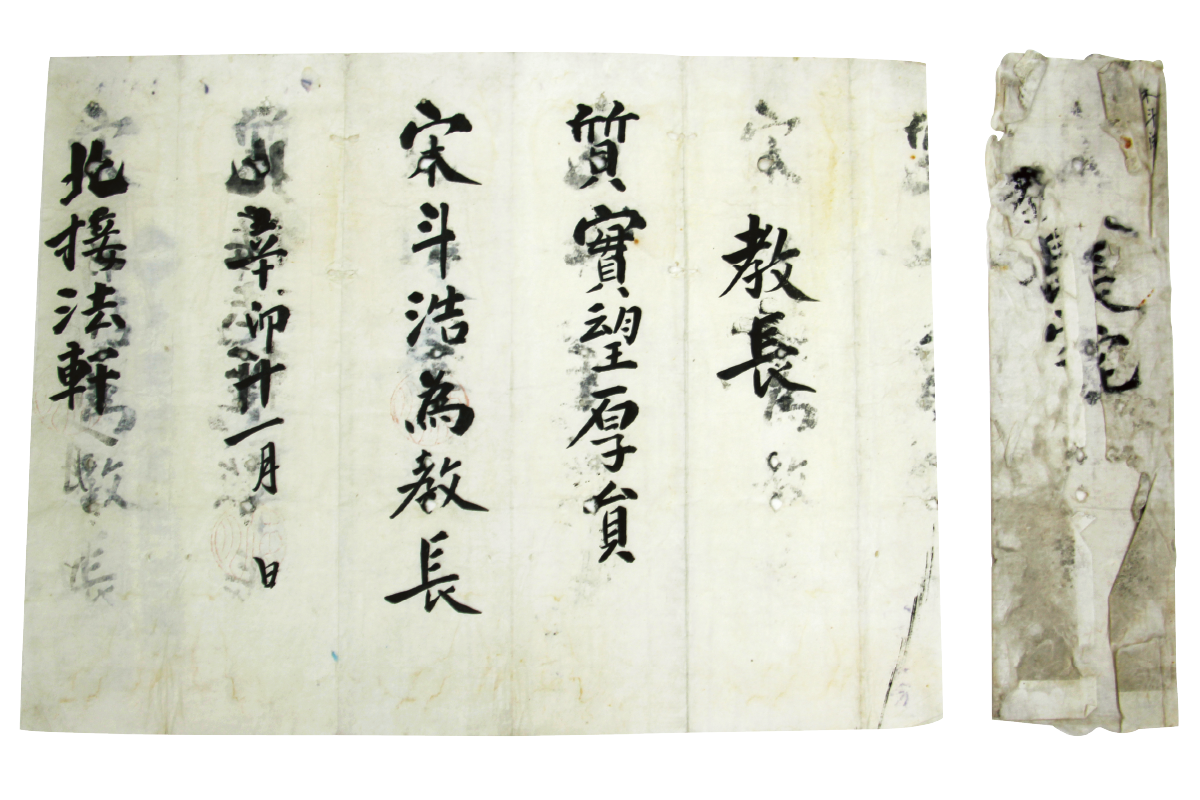 教長
質實望厚貟
宋斗浩為教長
辛卯十一月 日
北接法軒